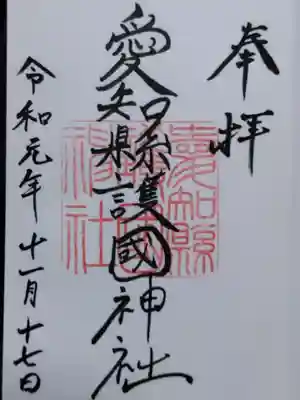 奉拝
愛知縣護國神社
令和元年十一月十七日
愛知縣護國神社